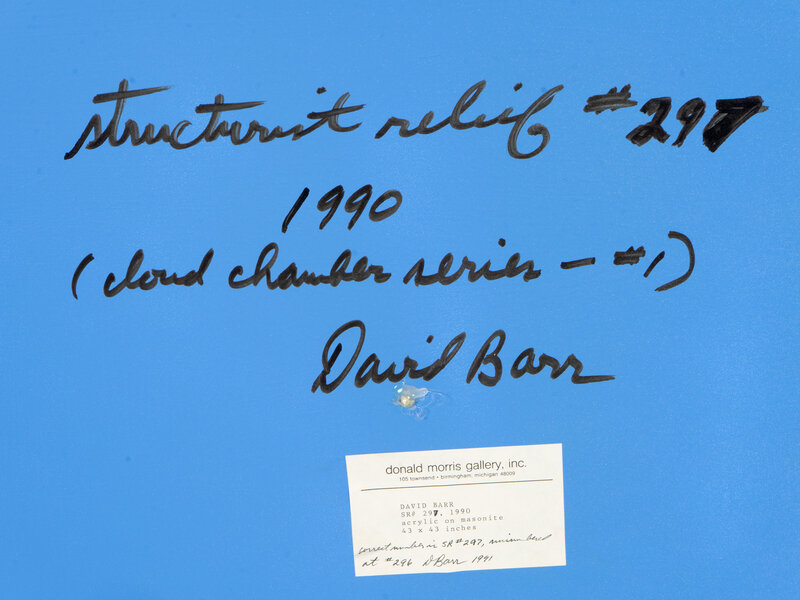 structurist relief #297
1990
(cloud chamber series - #1)
David Barr
donald morris gallery, inc.
105 townsend • birmingham, michigan 48009
DAVID BARR
SR# 297, 1990
acrylic on masonite
43 x 43 inches
correct number is SR #297, misnumbered
at #296 D Barr 1991